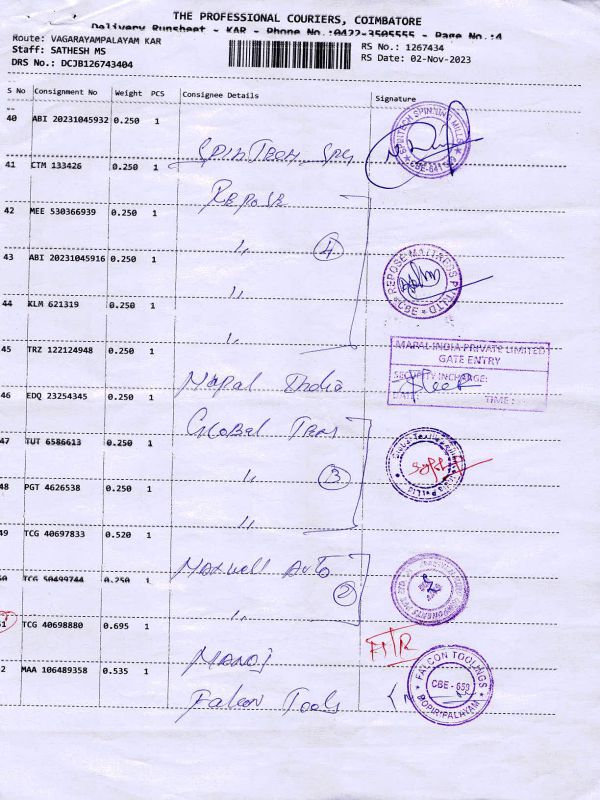 THE PROFESSIONAL COURIERS, COIMBATORE
Delivery Runsheet - KAR - Phone No.:0422-3505555 - Page No.:4
Route: VAGARAYAMPALAYAM KAR
RS No.: 1267434
Staff: SATHESH MS
RS Date: 02-Nov-2023
DRS No.: DCJB126743404
S No Consignment No Weight PCS Consignee Details Signature
40 ABI 20231045932 0.250 1
SPINTECH SPG
41 CTM 133426 0.250 1
REPOSE
42 MEE 530366939 0.250 1
" 4
43 ABI 20231045916 0.250 1
"
REPOSE MATTRESS PVT LTD
CBE
44 KLM 621319 0.250 1
"
MAPAL INDIA PRIVATE LIMITED
GATE ENTRY
45 TRZ 122124948 0.250 1
Mapal India
SECURITY INCHARGE:
DATE: TIME:
46 EDQ 23254345 0.250 1
GLOBAL
47 TUT 6586613 0.250 1
" 3
48 PGT 4626538 0.250 1
"
49 TCG 40697833 0.520 1
Maxwell Auto
50 TCG 50499744 0.250 1
" 2
51 TCG 40698880 0.695 1
MANOJ
2 MAA 106489358 0.535 1
Falcon Tools
FALCON TOOLINGS
CBE - 659
GOPIRPALAYAM